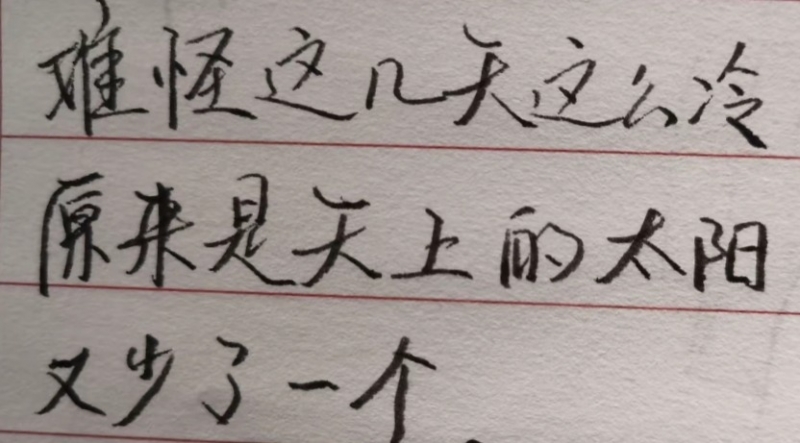 难怪这几天这么冷
原来是天上的太阳
又少了一个.